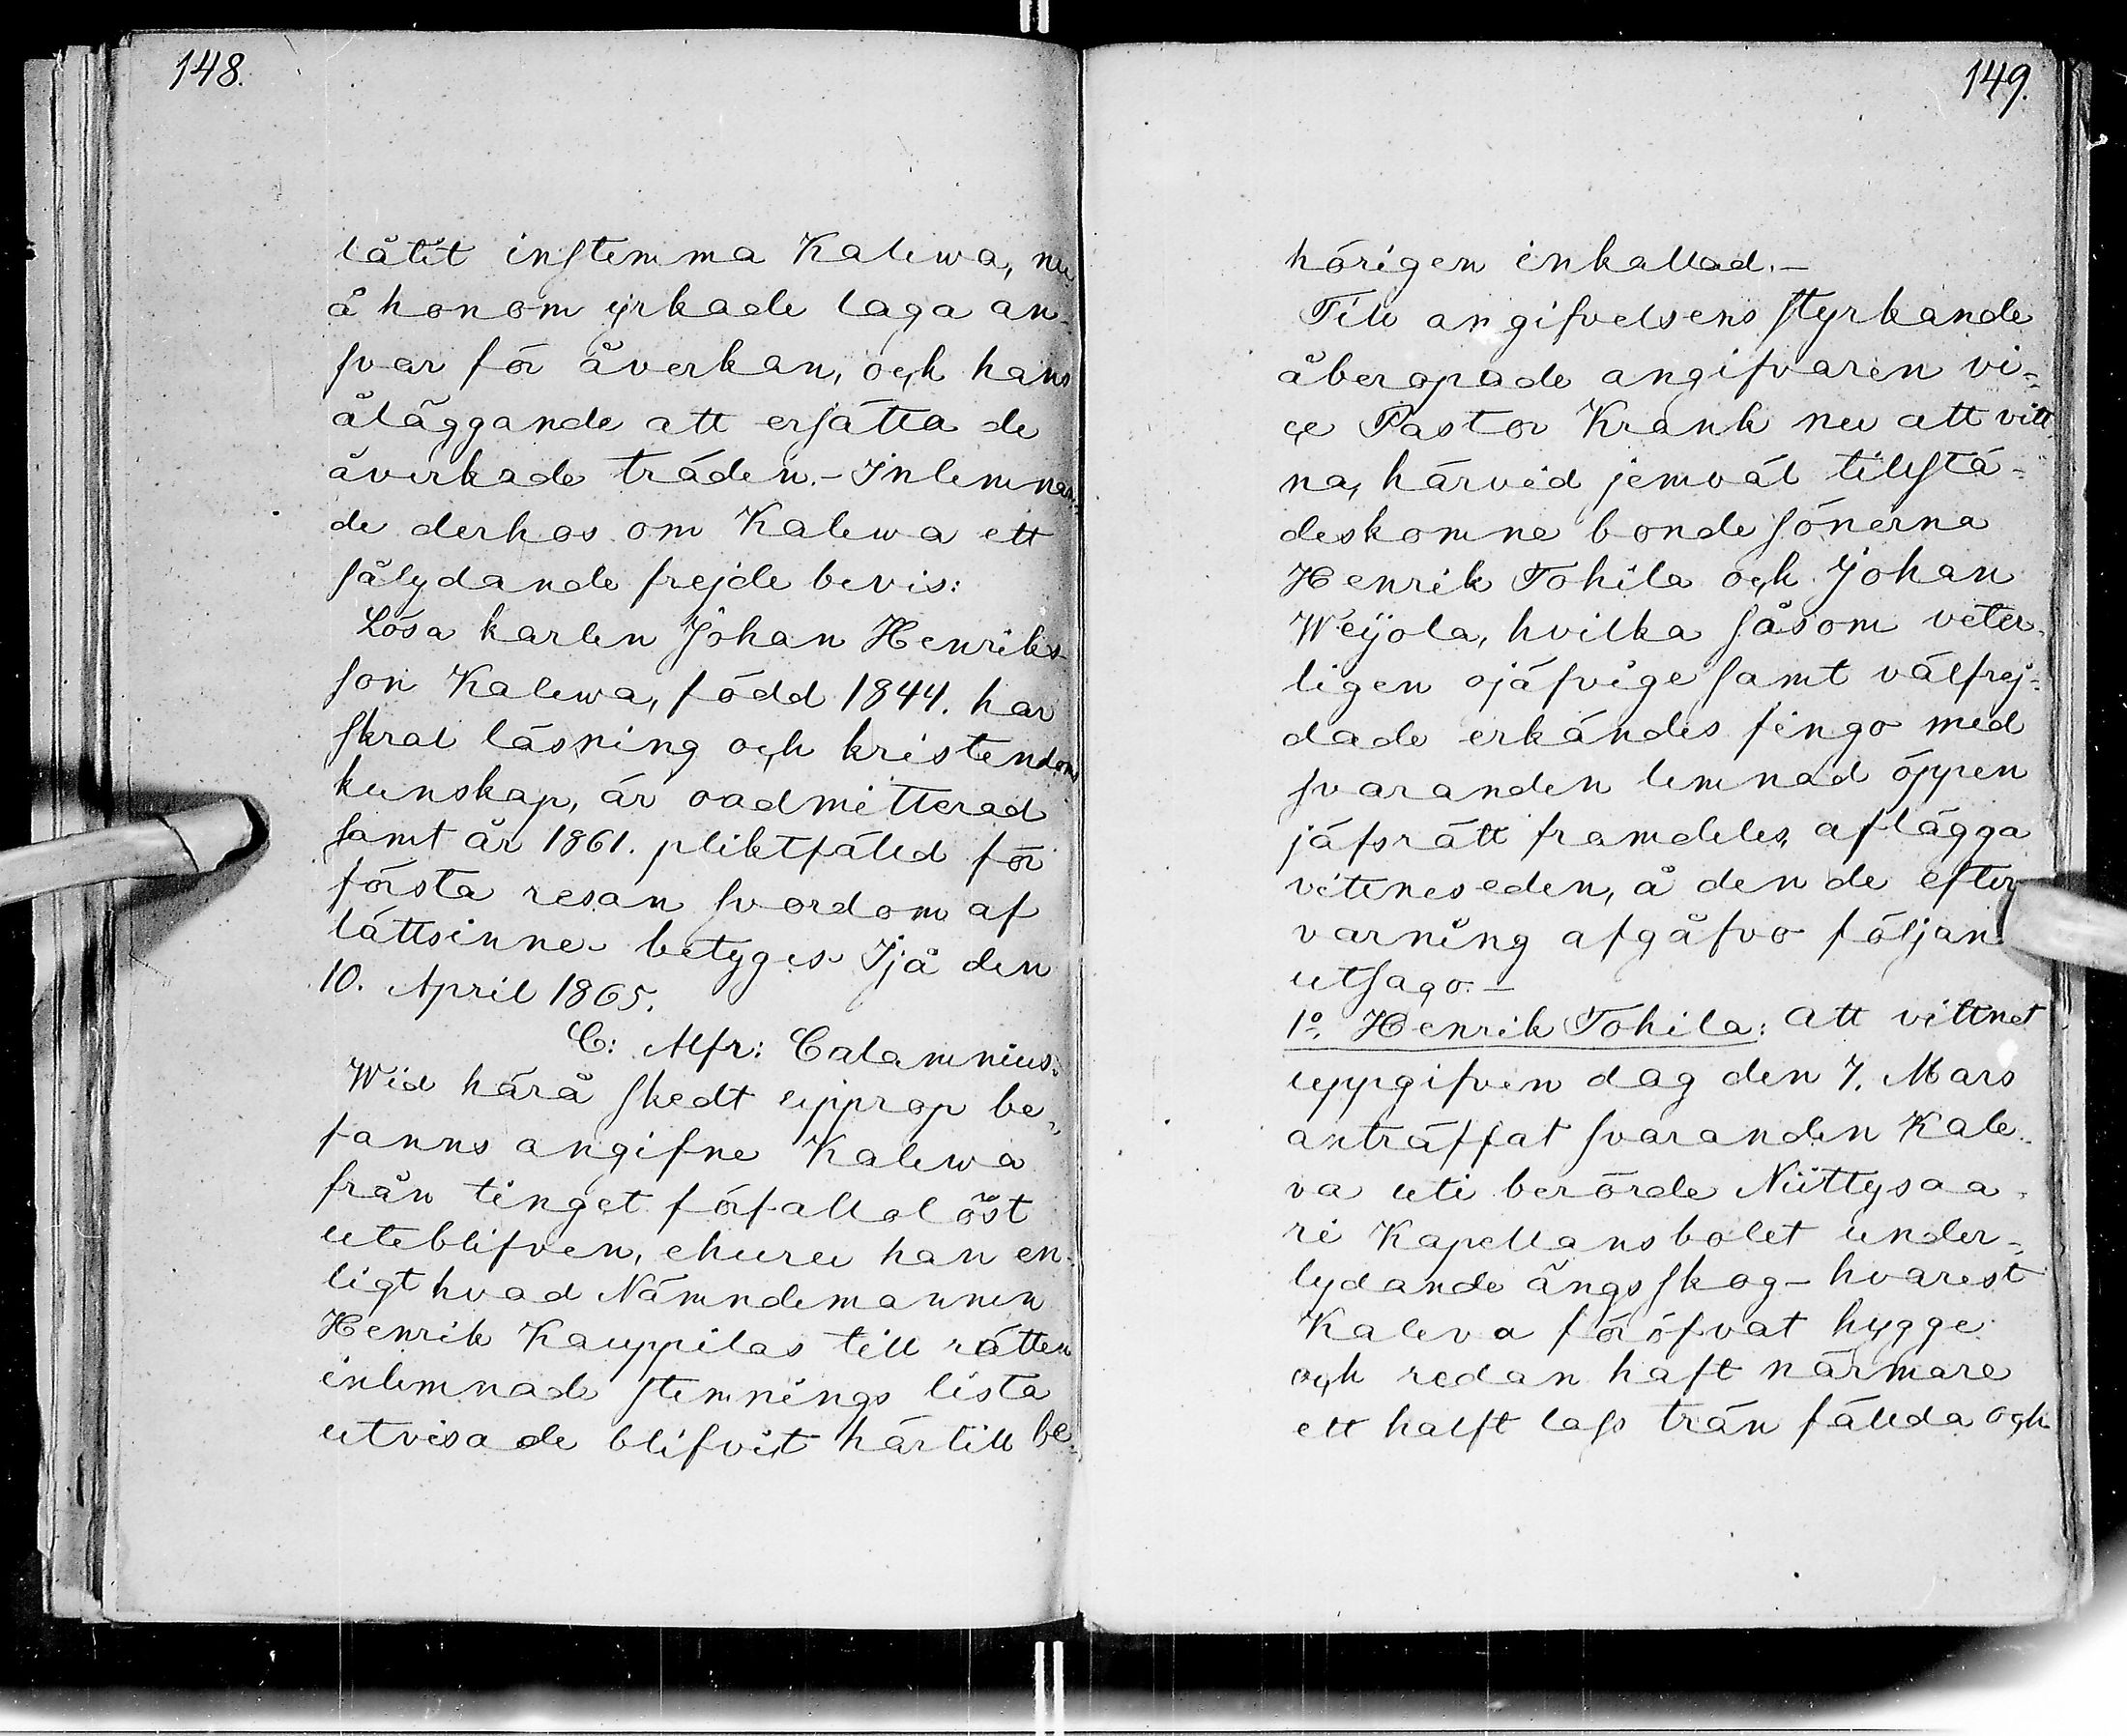 148.
låtit instemma Kalewa, nu
å honom yrkade laga an-
svar för åverkan, och hans
åläggande att ersätta de
åverkade träden.- Inlemnan-
de derhos om Kalewa ett
sålydande frejde bevis:
Lösa karlen Johan Henriks-
son Kalewa, född 1844. har
skral läsning och kristendoms
kunskap, är oadmitterad
samt år 1861. pliktfälld för
första resan svordom af
lättsinne betyges Ijå den
10. April 1865.
C: Alfr: Calamnius.
Wid härå skedt upprop be-
fanns angifne Kalewa
från tinget förfallolöst
uteblifven, ehuru han en-
ligt hvad Nämndemannen
Henrik Kauppilas till rätten
inlemnade stemnings lista
utvisade blifvit härtill be-
149.
hörigen inkallad.-
Till angifvelsens styrkande
åberopade angifvaren vi-
ce Pastor Krank nu att vitt-
na, härvid jemväl tillstä-
deskomne bonde sönerna
Henrik Tohila och Johan
Weijola, hvilka såsom veter-
ligen ojäfvige samt välfrej-
dade erkändes fingo med
svaranden lemnad öppen
jäfsrätt framdeles, aflägga
vittneseden, å den de efter
varning afgåfvo följan
utsago.-
1o. Henrik Tohila: att vittnet
uppgifven dag den 7. Mars
anträffat svaranden Kale-
va uti berörde Niittysaa-
ri Kapellansbolet under-
lydande ängsskog - hvarest
Kaleva föröfvat hygge
och redan haft närmare
ett halft lass trän fällda och